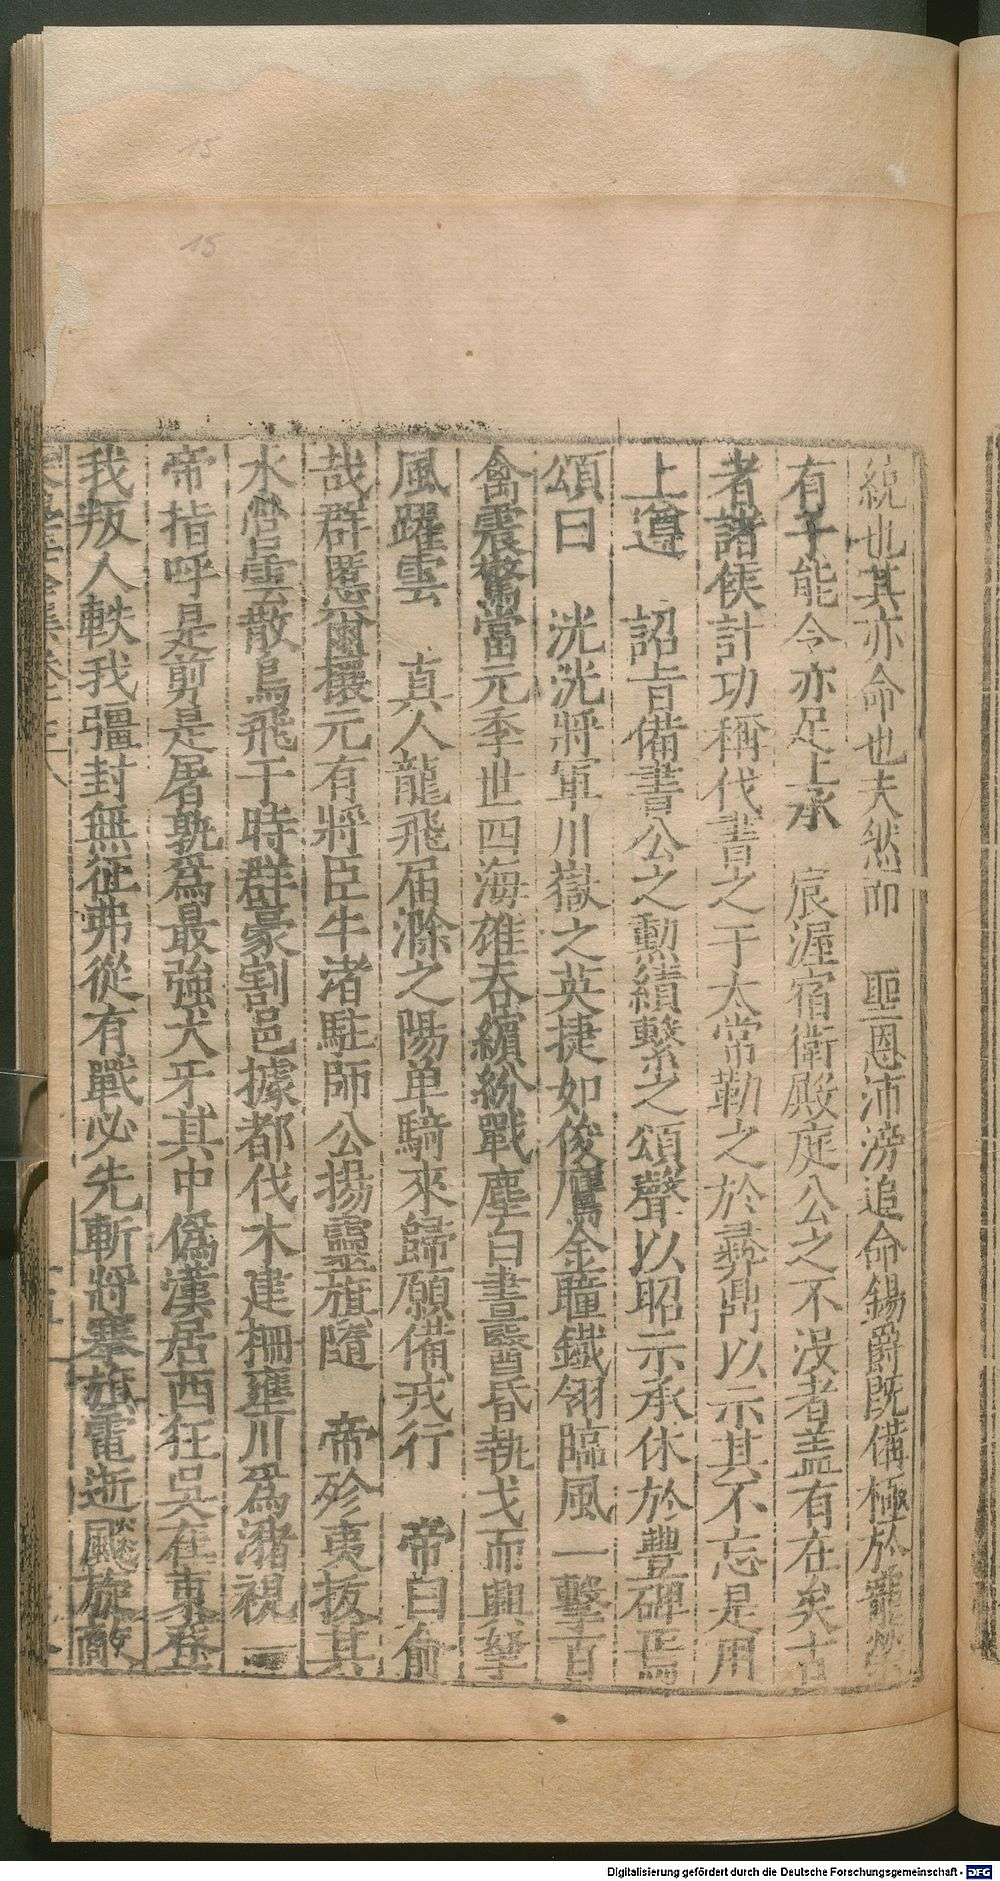 15
15
統也其亦命也夫然而　聖恩沛滂追命錫爵既備極於寵榮
有子能令亦足上承　宸渥宿衛殿庭公之不沒者盖有在矣古
者諸侯計功稱伐書之于太常勒之於彞鼎以示其不忘是用
上遵　詔旨備書公之勳績繫之頌聲以昭示承休於豐碑焉
頌曰　洸洸將軍川嶽之英捷如俊鷹金瞳鐵翎臨風一擊百
禽震驚當元季世四海雄吞繽紛戰塵白晝翳昏執戈而興拏
風躍雲　真人龍飛届滁之陽单騎來歸願備戎行　帝曰俞
哉群慝爾攘元有將臣牛渚駐師公揚靈旗隨　帝殄夷拔其
水營雲散鳥飛于時群豪割邑據都伐木建柵壅川為瀦視一
帝指呼是剪是屠孰為最強犬牙其中偽漢居西狂吳在東
我叛人軼我彊封無征弗從有戰必先斬將搴旗電逝飈旋